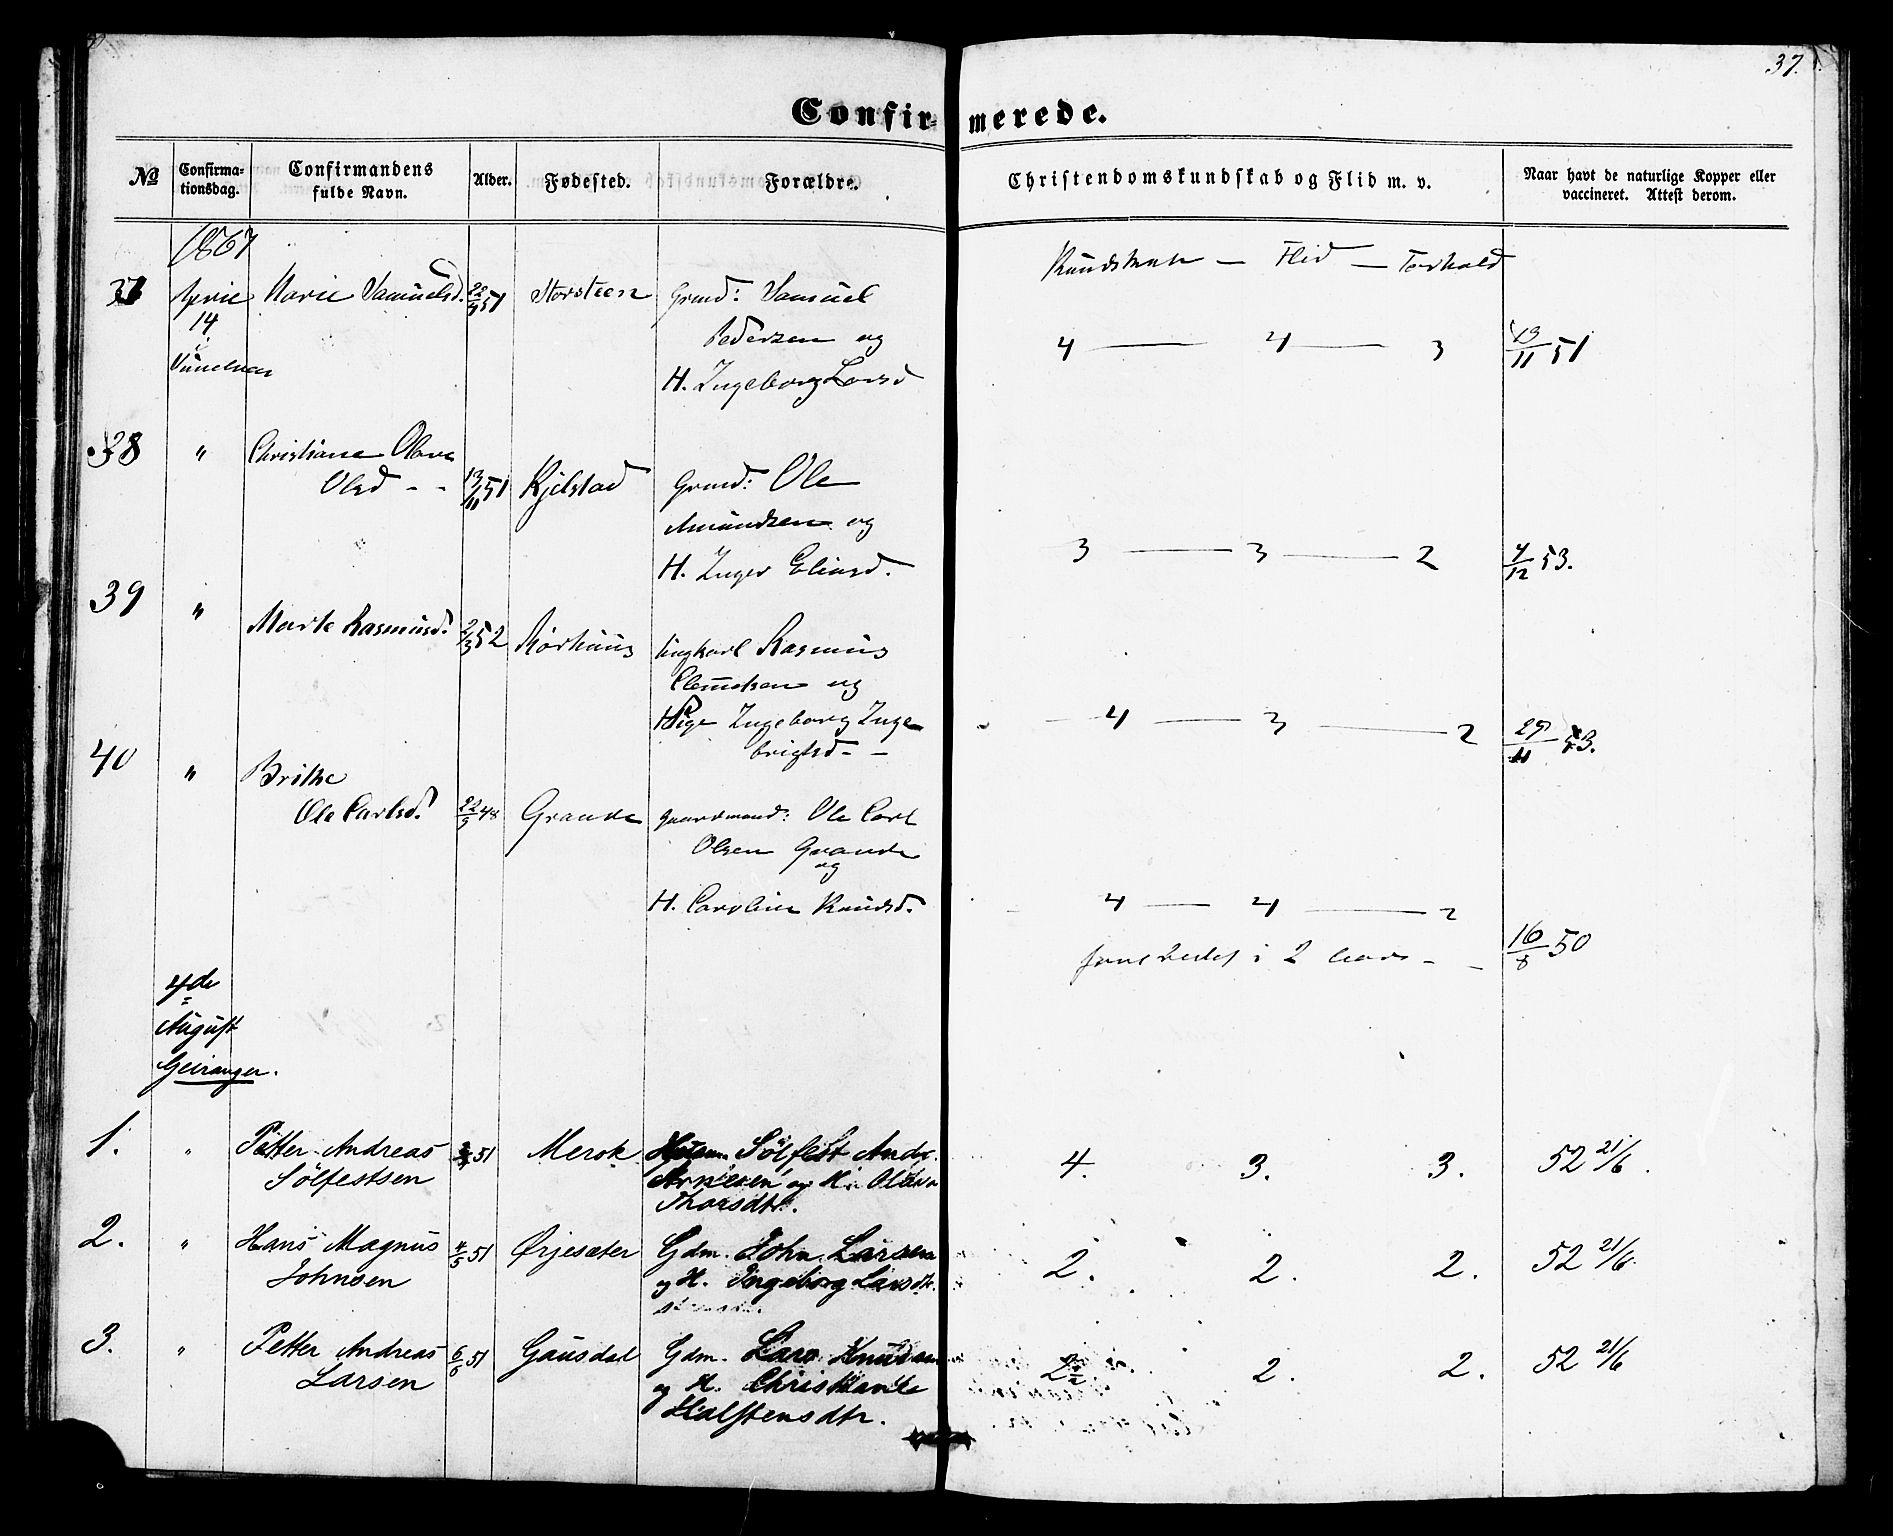 37.
Confirmerede.
No
Confirmationsdag.
Confirmandens fulde Navn.
Alder.
Fødested.
Forældre.
Christendomskundskab og Flid m. v.
Naar havt de naturlige Kopper eller vaccineret. Attest derom.
1867
Kundskab — Flid — Forhold
37 April Marie Samuelsd. 22/9 51 Storsteen Grmd: Samuel
14 Pedersen og
i
H. Ingeborg Larsd
4 — 4 — 3 13/11 51
38 " Christiane Olave
Olsd - - 13/11 51 Kjelstad Grmd: Ole
Amundsen og
H. Inger Eliasd.
3 — 3 — 2 4/12 53.
39 " Marte Rasmusd. 2/3 52 Korhuus Ungkarl Rasmus
Clemetsen og
Pige Ingeborg Inge
brigtsd - -
4 — 3 — 2 29/11 53.
40 " Brithe
Ole Carlsd. 22/9 48 Grande Gaardmand: Ole Carl
Olsen Grande
og
H. Caroline Knudsd.
4 — 4 — 2
i 2 Aar - - 16/8 50
4de
August
Geiranger.
1. " Petter Andreas 51 Merok Sölfest Andr.
Sölfestsen Arnesen og H. Olave
Thorsdtr.
4. 3. 3. 52 21/6.
2. " Hans Magnus 4/5 51 Ørjesæter Gdm. John Larsen
Johnsen og H. Ingeborg Larsdtr.
2. 2. 2. 52 21/6.
3. " Petter Andreas 6/6 51 Gausdal Gdm. Lars Knudsen
Larsen og H. Christiante
Halstensdtr.
2 1/2 2. 2. 52 21/6